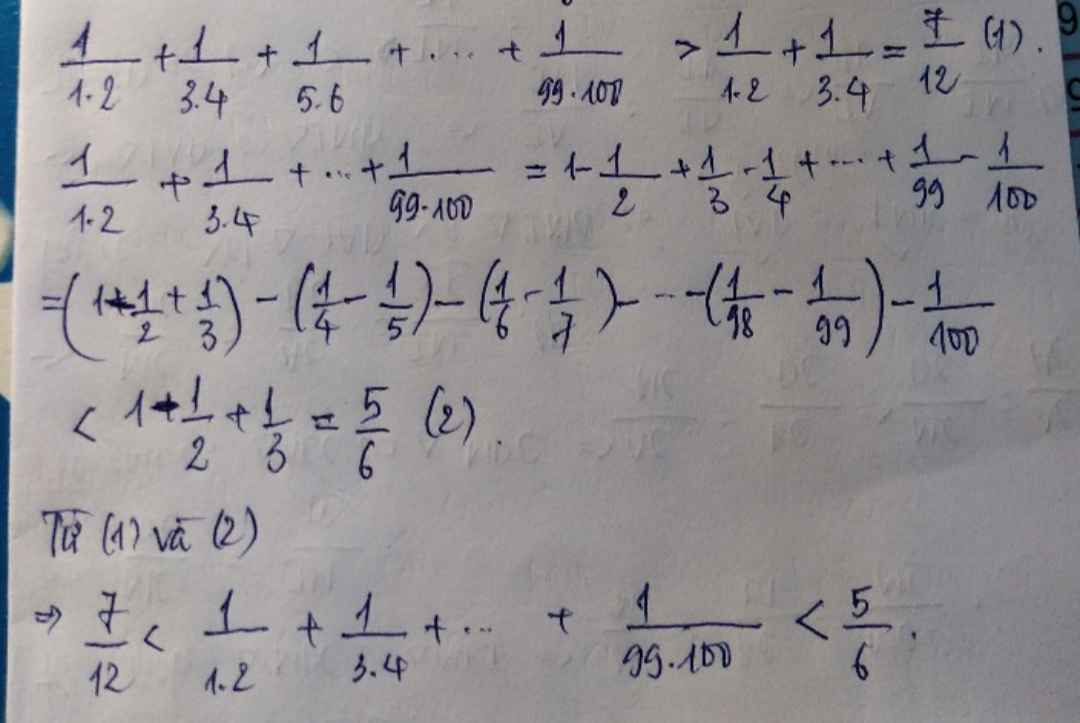 1/1.2 + 1/3.4 + 1/5.6 + ... + 1/99.100 > 1/1.2 + 1/3.4 = 7/12 (1).
1/1.2 + 1/3.4 + ... + 1/99.100 = 1 - 1/2 + 1/3 - 1/4 + ... + 1/99 - 1/100
= (1 - 1/2 + 1/3) - (1/4 - 1/5) - (1/6 - 1/7) - ... - (1/98 - 1/99) - 1/100
< 1 - 1/2 + 1/3 = 5/6 (2).
Từ (1) và (2)
⇒ 7/12 < 1/1.2 + 1/3.4 + ... + 1/99.100 < 5/6.